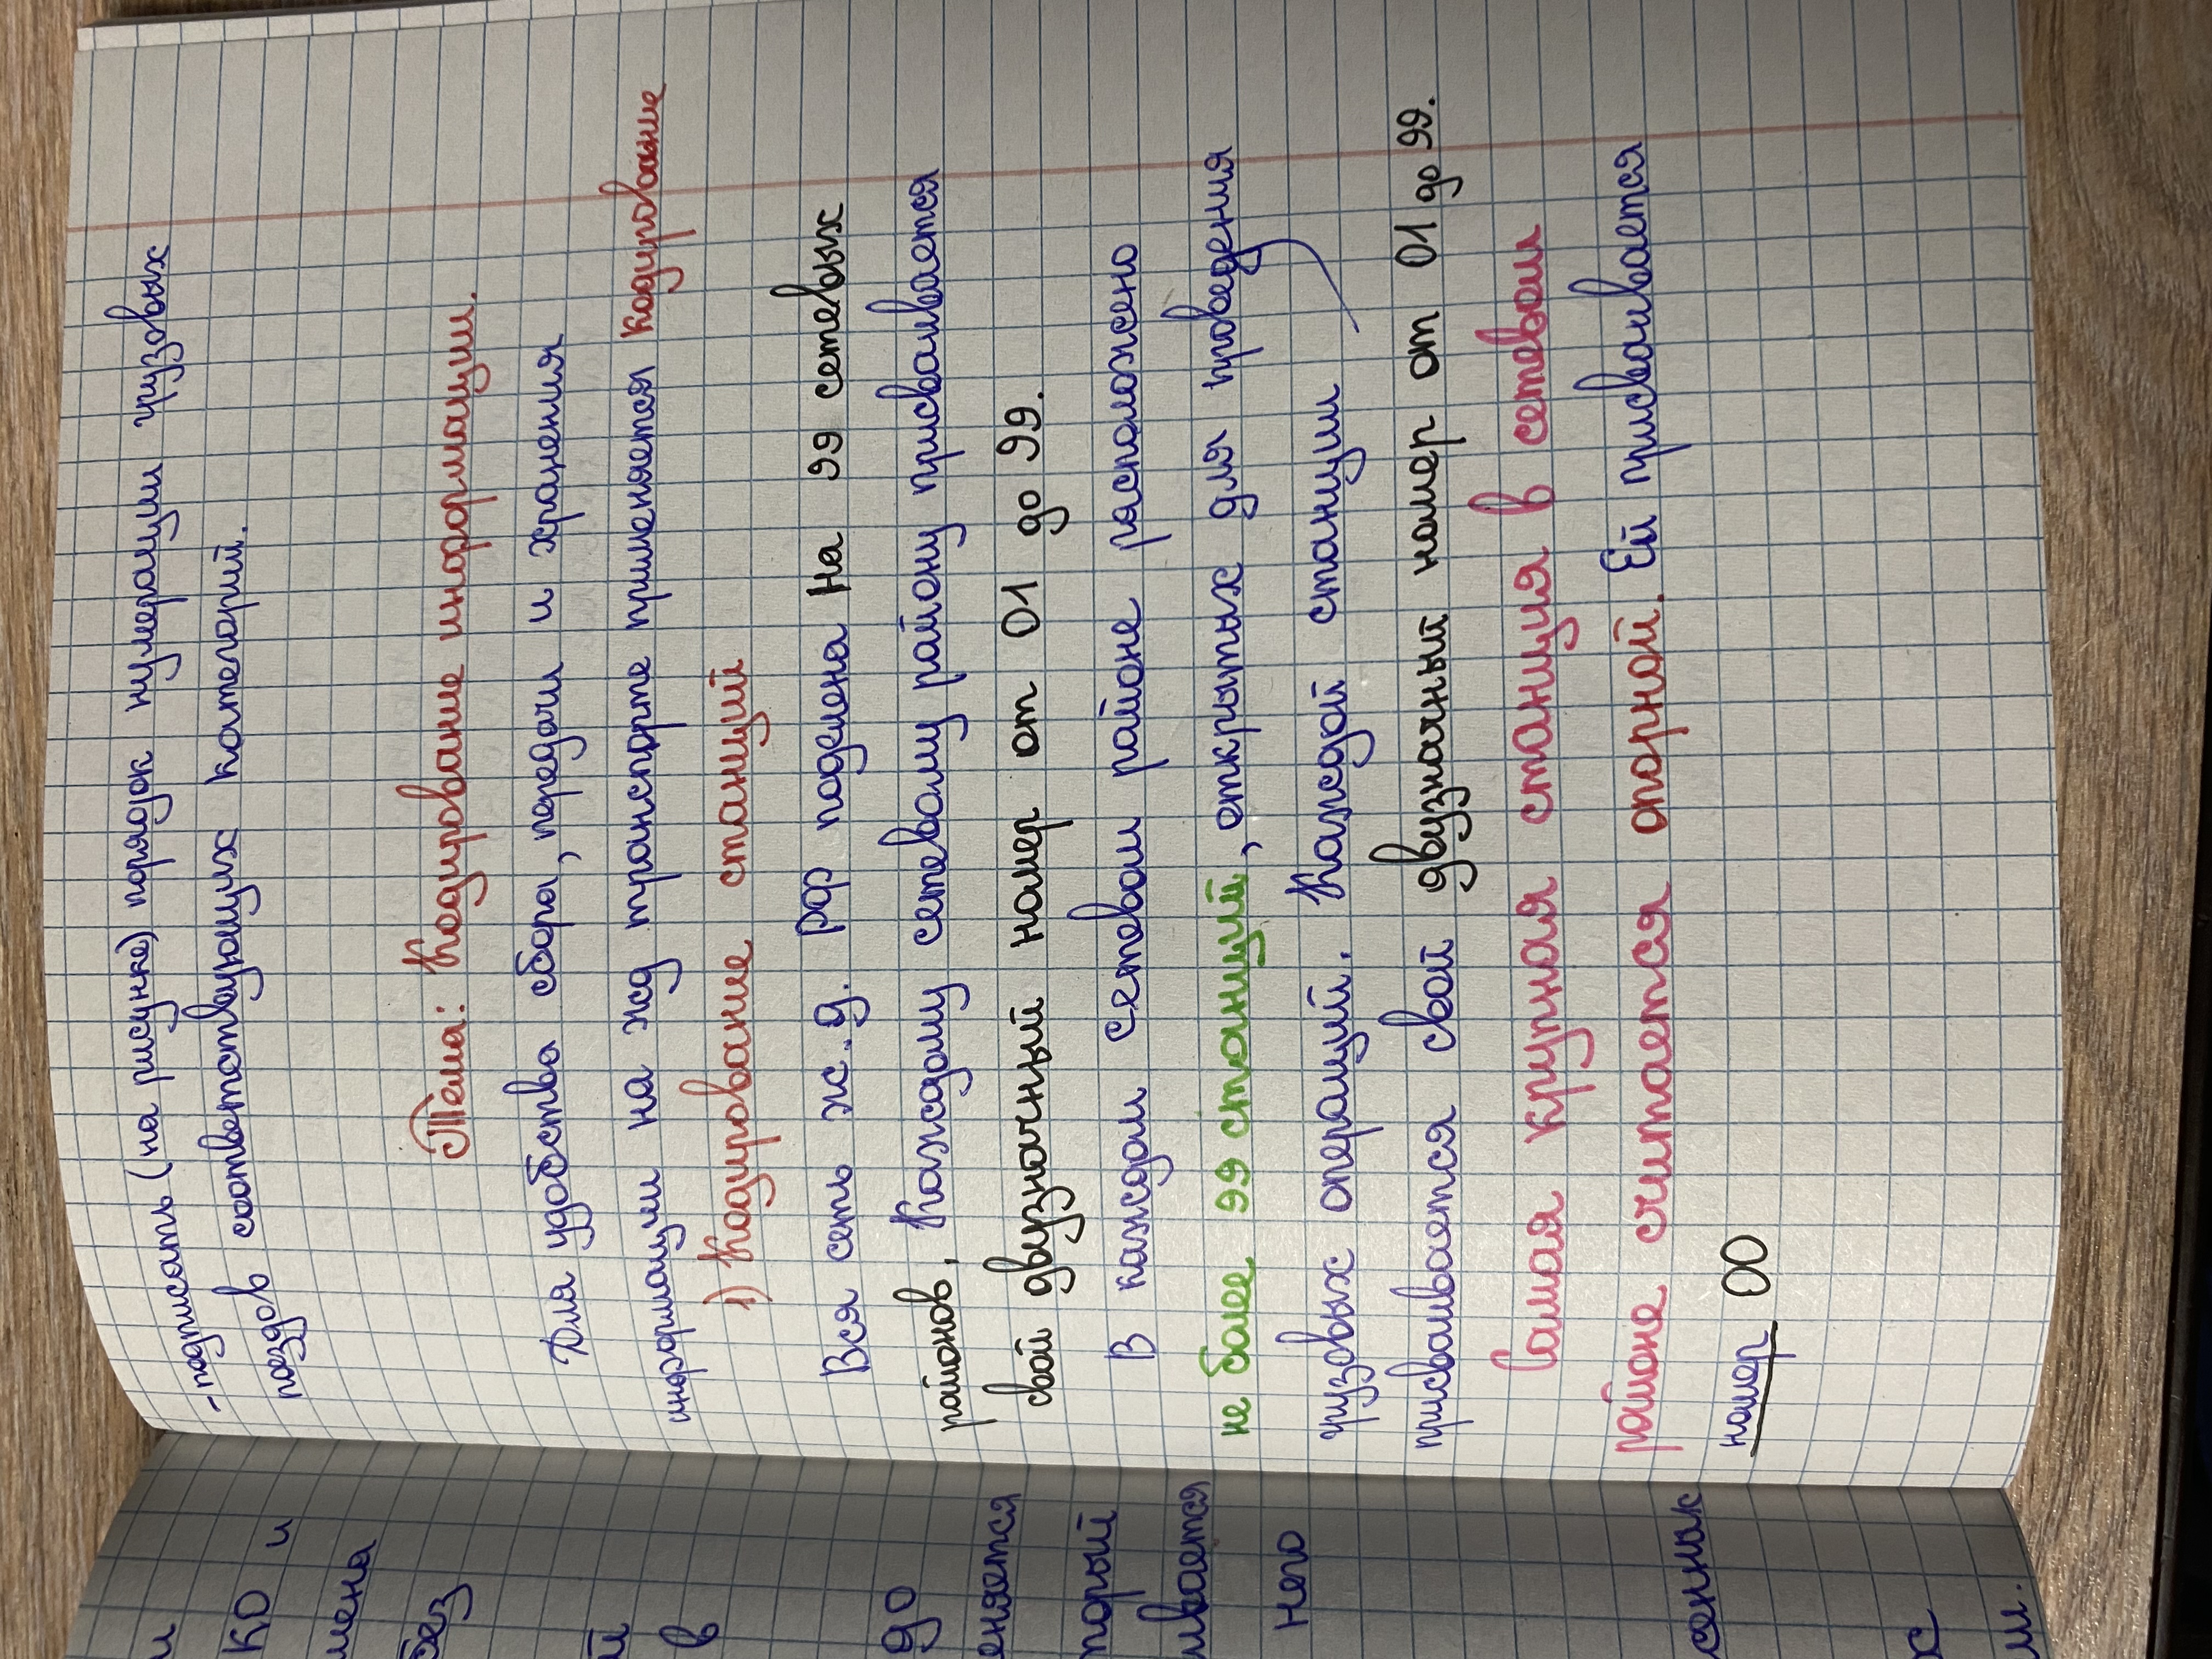 -подписать (на рисунке) порядок нумерации грузовых
поездов соответствующих категорий.
Тема: Кодирование информации.
Для удобства сбора, передачи и хранения
информации на жд транспорте применяется кодирование
1) Кодирование станций
Вся сеть ж.д. РФ поделена на 99 сетевых
районов. Каждому сетевому району присваивается
свой двузначный номер от 01 до 99.
В каждом сетевом районе расположено
не более 99 станций, открытых для проведения
грузовых операций. Каждой станции
присваивается свой двузначный номер от 01 до 99.
Самая крупная станция в сетевом
районе считается опорной. Ей присваивается
номер 00
и
КО и
мена
без
й
в
до
еняется
торый
ивается
него
сенник
х
м.